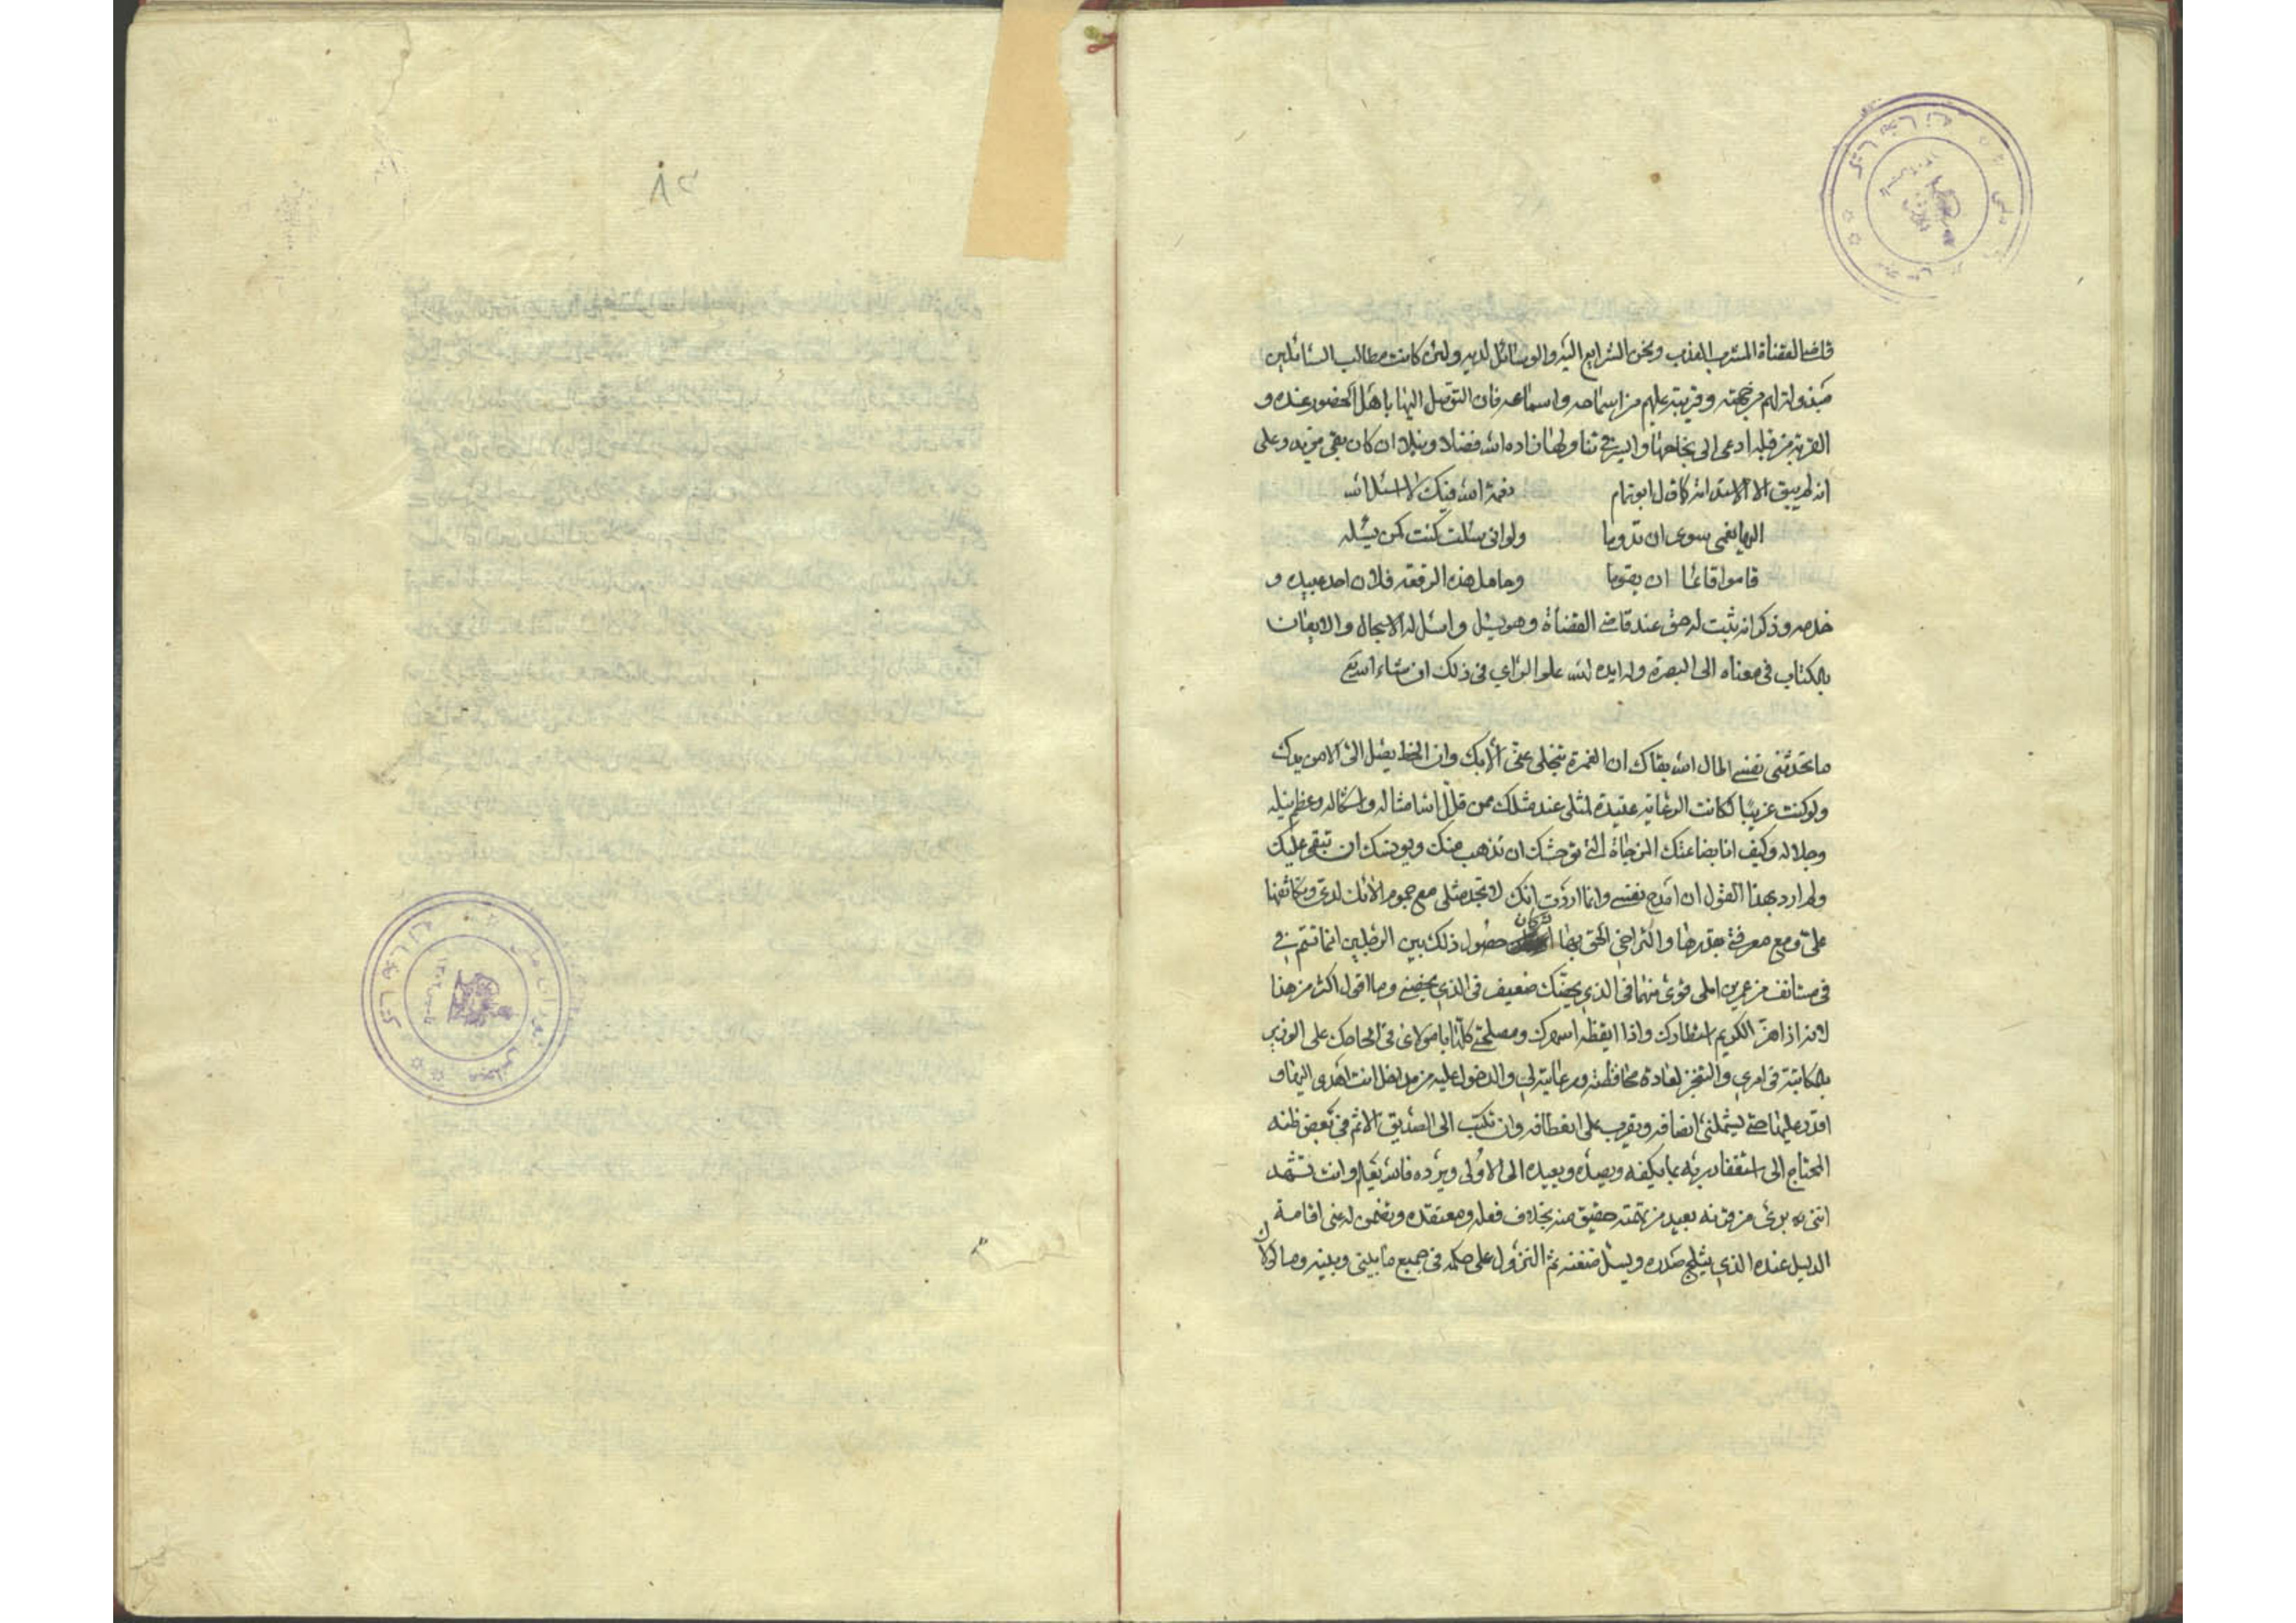 قاضي القضاة المشرب العذب ونحن الشرايع اليه والوسائل لديه ولئن كانت مطالب السائلين
مبذولة لهم من جهته وقريبة عليهم من اسماحه واسماعه فان التوصل اليها باهل الحضور عنده و
القربة من قبله ادعى الى نجاحها وايسر في تناولها فزاده الله فضلا ونبلا ان كان بقى مزيد وعلى
انه لم يبق الا الاستدامة كما قال ابو تمام
نعمة الله فيك لا اسئل الله
اليها نعمى سوى ان تدوما
ولو انى سئلت كنت كمن يسئله
قاموا قائما ان يقوما
وحامل هذه الرقعة فلان احد عبيده و
خدمه وذكر انه ثبت له حق عند قاضي القضاة وهو يسئل واسئل له الاسجال والايعان
بالكتاب في معناه الى البصرة وله ايده الله علو الراي في ذلك ان شاء الله تع
ما تحدثنى نفسي اطال الله بقاك ان الغمرة تنجلى عنى الا بك وان الحظ يصل الى الا من يدك
ولو كنت غريبا لكانت الرعاية عتيدة لمثلى عند مثلك ممن قلل الله امثاله واشكاله وعظم نيله
وجلاله وكيف انا بضاعتك المزجاة التي توحشك ان تذهب منك ويونسك ان تبقى عليك
ولم ارد بهذا القول ان امدح نفسي وانما اردت انك لا تجد مثلى مع جموم لدى وتكاثفها
على ومع معرفتي بقدرها والتراخي التى بها كان حصول ذلك بين الرجلين انما تتم في
في مستانف من عمرين املى قوى منهما في الذي يحبك ضعيف في الذي يخصنى وما اقول اكثر من هذا
لانه اذا هز الكريم استطارك واذا ايقظه اسهرك ومصلحتي كلها يا مولاى في الحاحك على الوزير
بالمكاتبة في امري والتنجز لعادة محافظته ورعايته لي والدخول عليه من مداخل انت اهدى اليها و
اقدر عليها حتى يشملنى انصافه ويقرب على انعطافه وان تكتب الى الصديق الاثم في بعض ظنه
المحتاج الى استغفار ربه بما يكفه ويصده ويعيده الى الاولى ويرده فالله يعلم وانت تشهد
اننى برئ من قرفه بعيد من تهمته حقيق منه بخلاف فعله ومعتقده وتضمن له عنى اقامة
الدليل عنده الذي يثلج صدره ويسل ضغنه ثم النزول على حكمه في جميع ما بينى وبينه وما كان
٨٣